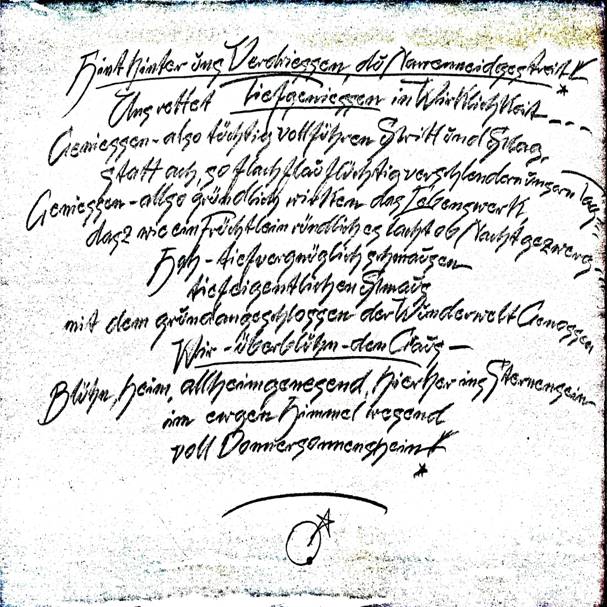 Hint hinter uns Verdriessen, du Narrenneidgestreit!
Uns rettet Tiefgeniessen in Wirklichkeit - - -
Geniessen - also tüchtig vollführen Schritt und Schlag,
statt ach, so flach flau flüchtig verschlendern unsern Tag =
Geniessen - allso gründlich wirken das Lebenswerk
dasz wie ein Früchtlein ründlich es lacht ob Nachtgezwerg -
Hah - tiefvergnüglich schmausen
tiefeigentlichen Schmaus
mit dem gründangeschlossen der Wunderwelt Genossen
Wir - überblühn - den Graus -
Blühn, heim, allheimgenesend, hierher ins Sternensein
im ewgen Himmel wesend
voll Donnersonnenschein!